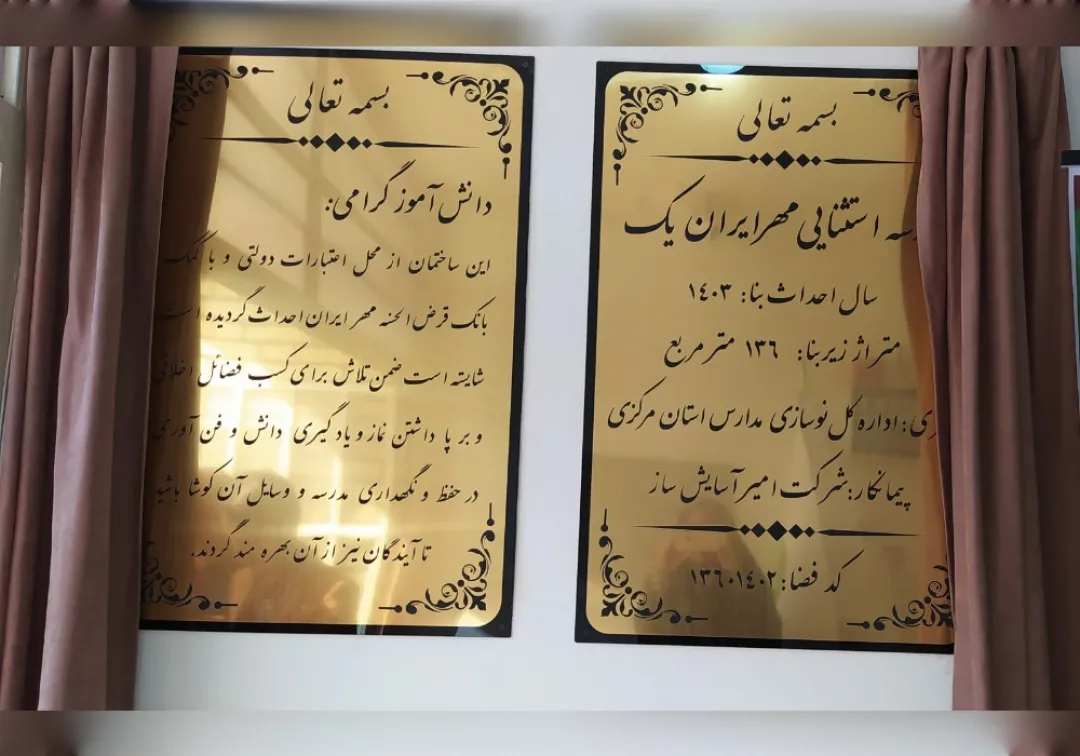 بسمه تعالی
استثنایی مهر ایران یک
سال احداث بنا: ۱۴۰۳
متراژ زیربنا: ۱۳۶ متر مربع
اداره کل نوسازی مدارس استان مرکزی
پیمانکار: شرکت امیر آسایش ساز
کد فضا: ۱۳۶۰۱۴۰۲
بسمه تعالی
دانش آموز گرامی:
این ساختمان از محل اعتبارات دولتی و با کمک
بانک قرض الحسنه مهر ایران احداث گردیده است
شایسته است ضمن تلاش برای کسب فضائل اخلاقی
و بر پا داشتن نماز و یادگیری دانش و فن آوری
در حفظ و نگهداری مدرسه و وسایل آن کوشا باشید
تا آیندگان نیز از آن بهره مند گردند.